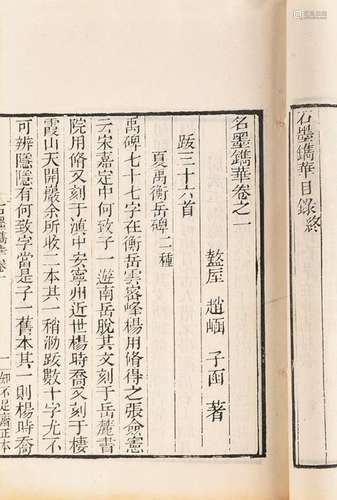 石墨鐫華目錄終
名墨鐫華卷之一
盩厔 趙崡 子函 著
跋三十六首
夏禹衡岳碑二種
禹碑七十七字在衡岳雲密峰楊用脩得之張僉憲
云宋嘉定中何致子一遊南岳脫其文刻于岳麓書
院用脩又刻于滇中安寧州近世楊時喬又刻于棲
霞山天開巖余所收二本其一稍泐跋數十字尤不
可辨隱隱有何致字當是子一舊本其一則楊時喬
石墨鐫華卷一 一 知不足齋正本